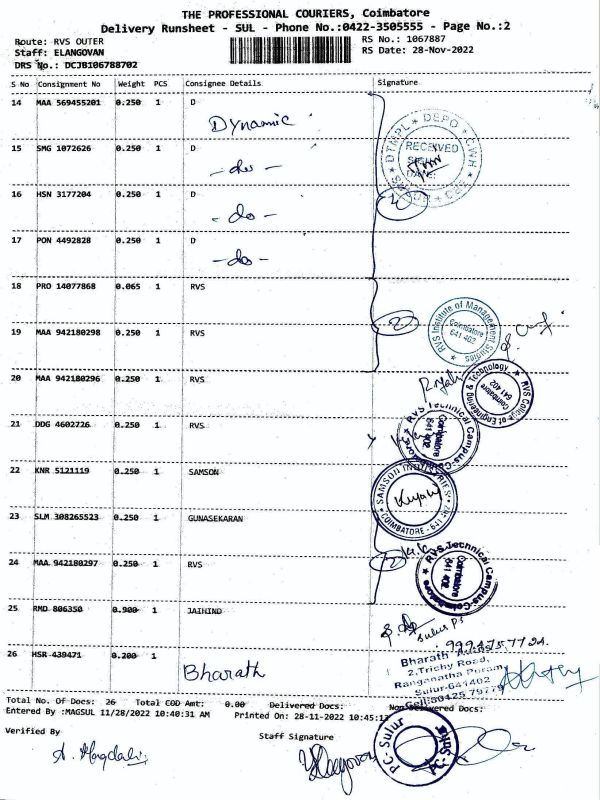 THE PROFESSIONAL COURIERS, Coimbatore
Delivery Runsheet - SUL - Phone No.:0422-3505555 - Page No.:2
Route: RVS OUTER RS No.: 1067887
Staff: ELANGOVAN RS Date: 28-Nov-2022
DRS No.: DCJB106788702
S No Consignment No Weight PCS Consignee Details Signature
14 MAA 569455201 0.250 1 D
Dynamic
DTMPL DEPO
RECEIVED
15 SMG 1072626 0.250 1 D
- do -
16 HSN 3177204 0.250 1 D
- do -
17 PON 4492828 0.250 1 D
- do -
18 PRO 14077868 0.065 1 RVS
RVS Institute of Management Studies
Coimbatore
641 402
19 MAA 942180298 0.250 1 RVS
20 MAA 942180296 0.250 1 RVS
RVS College of Engineering & Technology
Coimbatore
641 402
21 DDG 4602726 0.250 1 RVS
RVS Technical Campus-Coimbatore
Coimbatore
641 402
22 KNR 5121119 0.250 1 SAMSON
SAMSON INDUSTRIES
COIMBATORE - 641
23 SLM 308265523 0.250 1 GUNASEKARAN
24 MAA 942180297 0.250 1 RVS
RVS Technical Campus-Coimbatore
Coimbatore
641 402
25 RMD 806350 0.900 1 JAIHIND
Sulur PS
26 HSR 439471 0.200 1
Bharath
Bharath
2,Trichy Road,
Ranganatha Puram
Sulur-641402
Total No. Of Docs: 26 Total COD Amt: 0.00 Delivered Docs: Non Delivered Docs:
Entered By :MAGSUL 11/28/2022 10:40:31 AM Printed On: 28-11-2022 10:45:12
Verified By Staff Signature
PC. Sulur